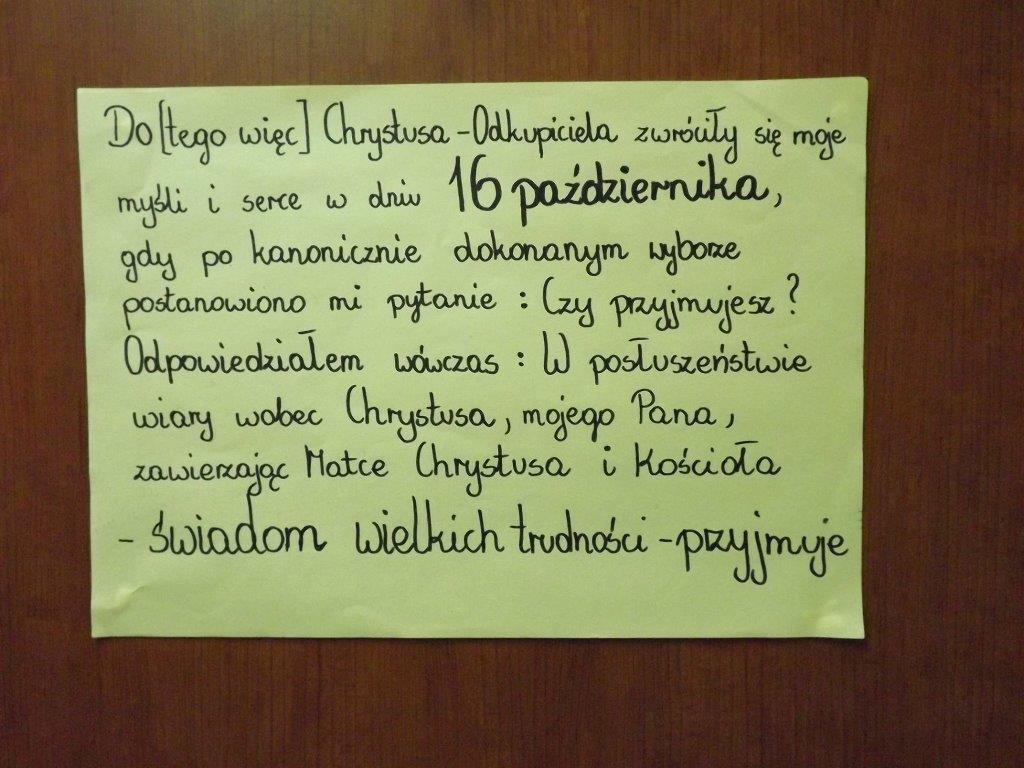 Do [tego więc] Chrystusa - Odkupiciela zwróciły się moje
myśli i serce w dniu 16 października,
gdy po kanonicznie dokonanym wyborze
postanowiono mi pytanie : Czy przyjmujesz?
Odpowiedziałem wówczas : W posłuszeństwie
wiary wobec Chrystusa, mojego Pana,
zawierzając Matce Chrystusa i Kościoła
- świadom wielkich trudności - przyjmuje